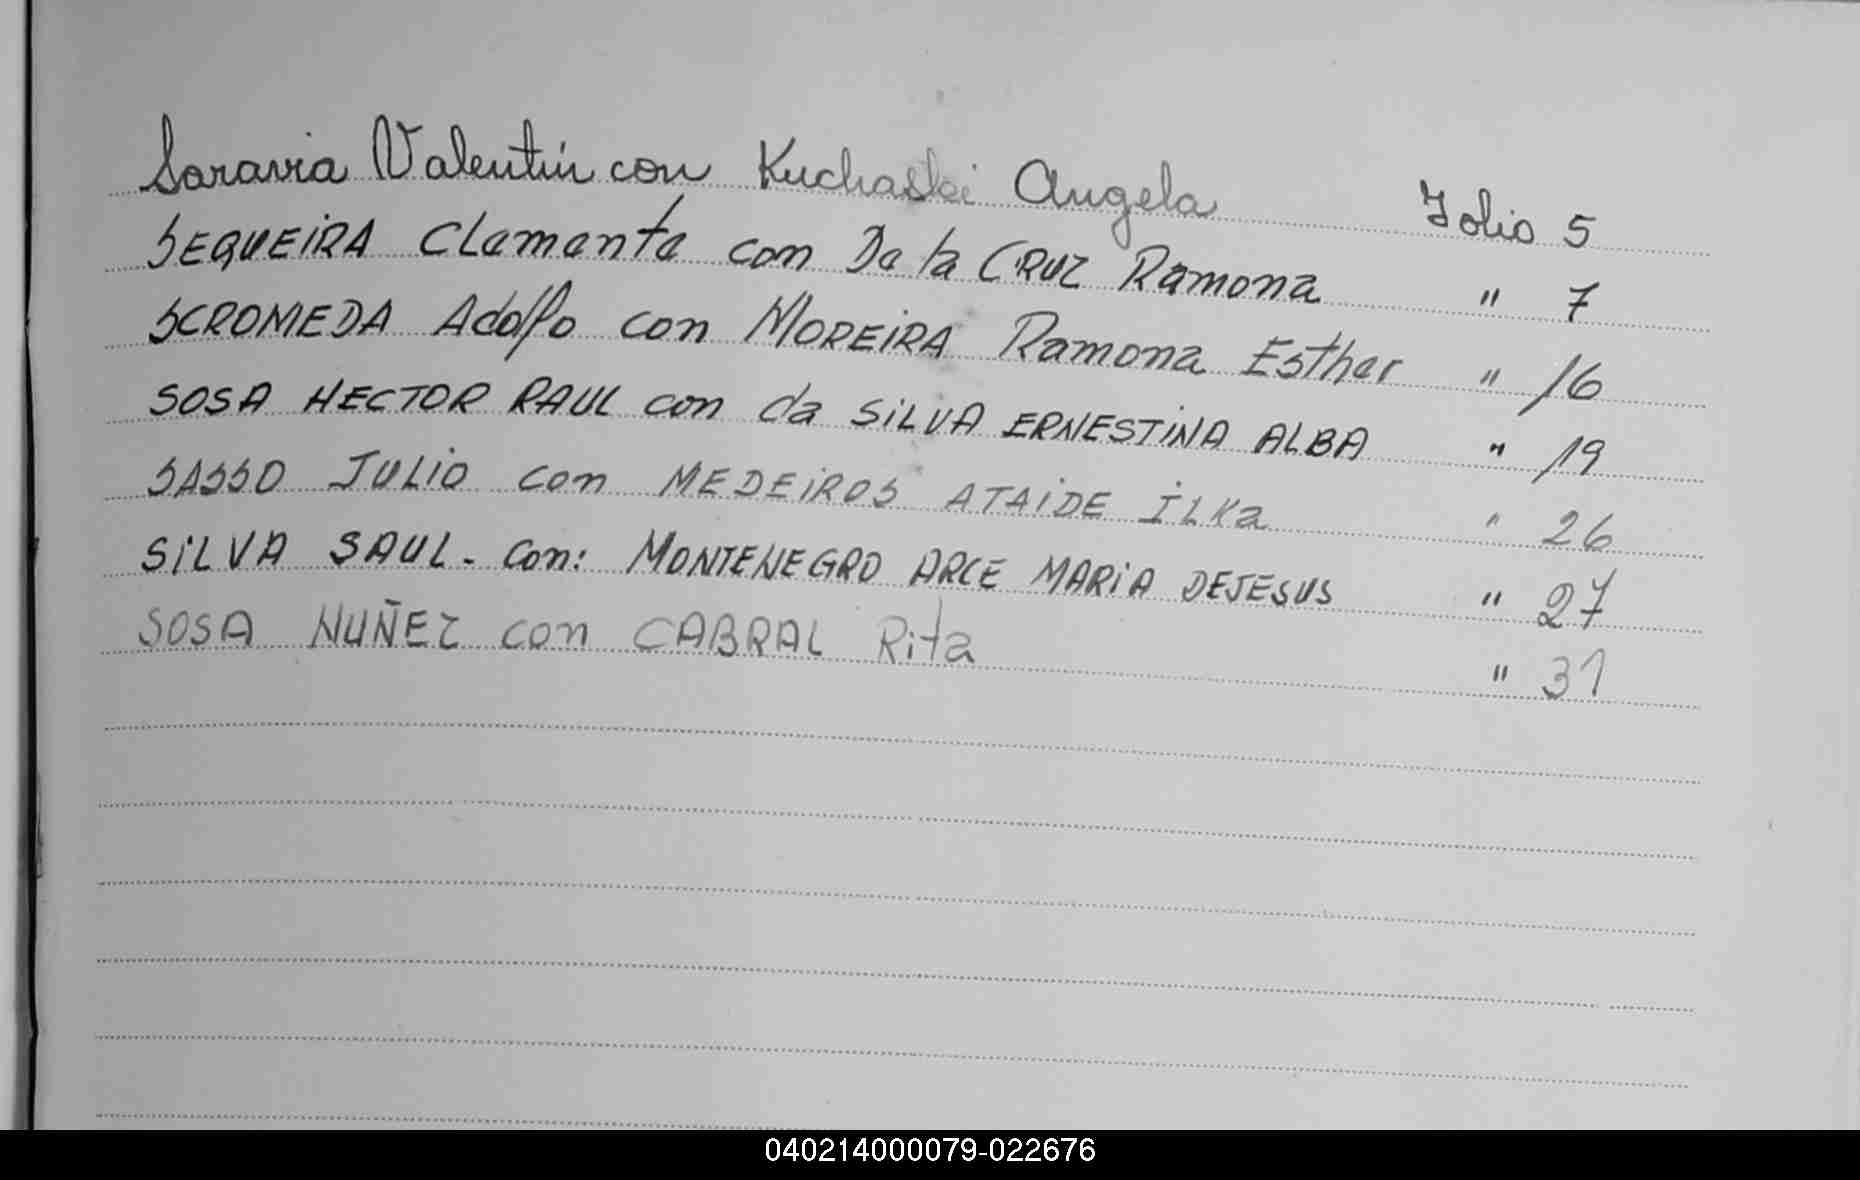 Saravia Valentin con Kuchaski Angela Folio 5
SEQUEIRA Clemente con De la CRUZ Ramona " 7
SCROMEDA Adolfo con MOREIRA Ramona Esther " 16
SOSA HECTOR RAUL con da SILVA ERNESTINA ALBA " 19
SASSO JULIO con MEDEIROS ATAIDE ILKa " 26
SILVA SAUL. Con: MONTENEGRO ARCE MARIA DEJESUS " 27
SOSA NUÑEZ con CABRAL Rita " 31
040214000079-022676